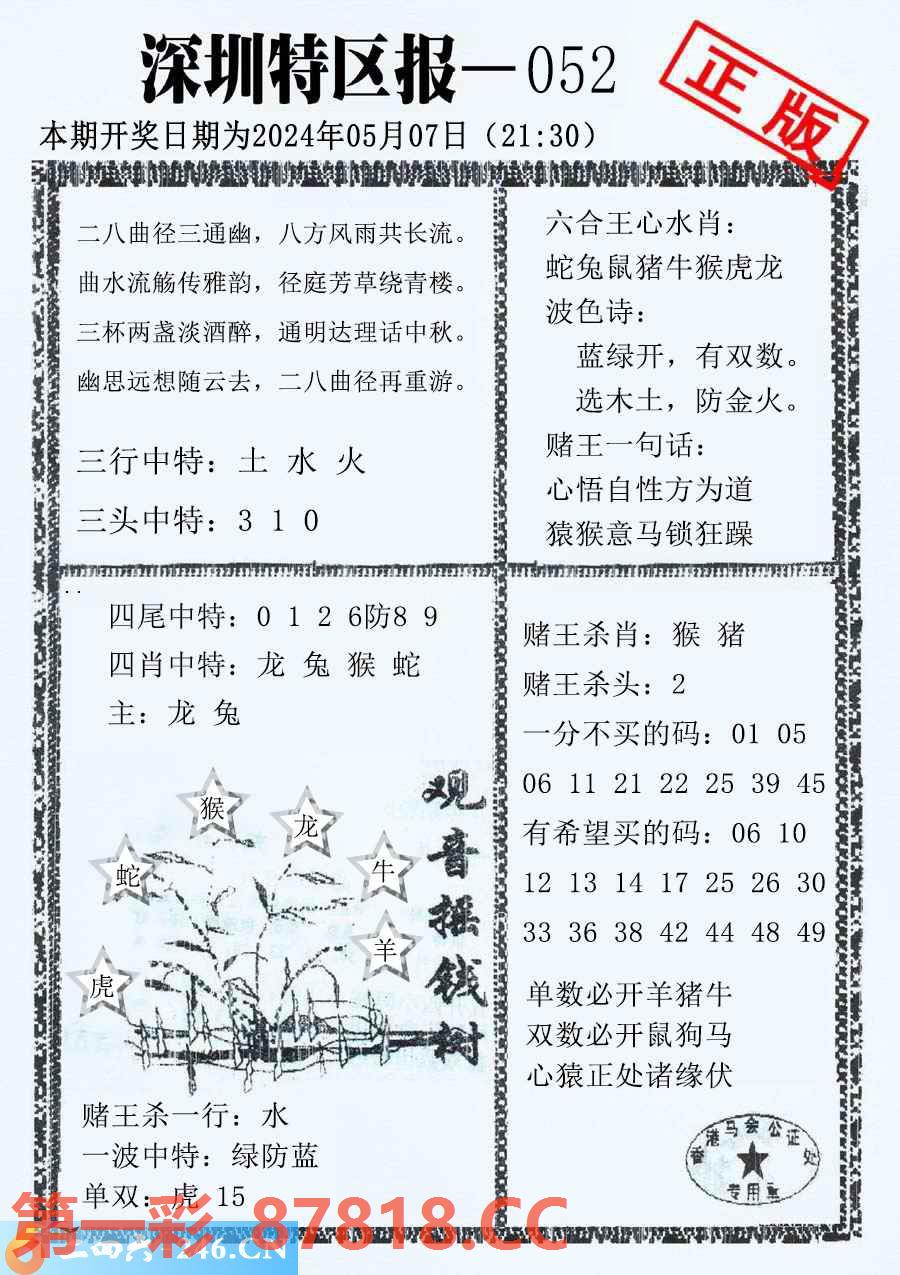 深圳特区报—052
正版
本期开奖日期为2024年05月07日（21:30）
二八曲径三通幽，八方风雨共长流。
曲水流觞传雅韵，径庭芳草绕青楼。
三杯两盏淡酒醉，通明达理话中秋。
幽思远想随云去，二八曲径再重游。
三行中特：土 水 火
三头中特：3 1 0
六合王心水肖：
蛇兔鼠猪牛猴虎龙
波色诗：
蓝绿开，有双数。
选木土，防金火。
赌王一句话：
心悟自性方为道
猿猴意马锁狂躁
四尾中特：0 1 2 6防8 9
四肖中特：龙 兔 猴 蛇
主：龙 兔
猴
龙
蛇
牛
羊
虎
观音摇钱树
赌王杀一行：水
一波中特：绿防蓝
单双：虎 15
赌王杀肖：猴 猪
赌王杀头：2
一分不买的码：01 05
06 11 21 22 25 39 45
有希望买的码：06 10
12 13 14 17 25 26 30
33 36 38 42 44 48 49
单数必开羊猪牛
双数必开鼠狗马
心猿正处诸缘伏
香港马会公证处
专用章
第一彩 87818.CC
246.CN